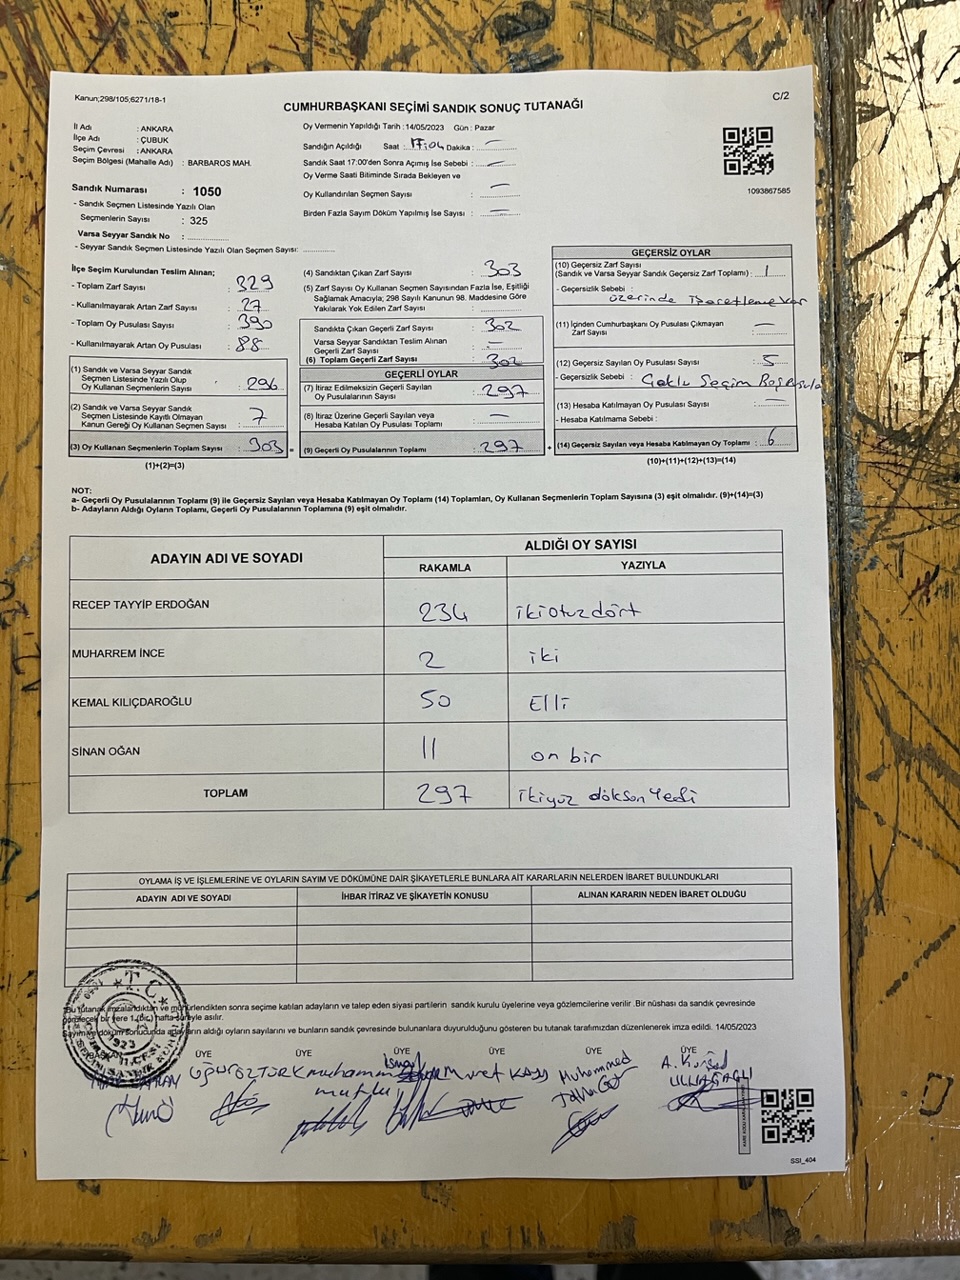 Kanun;298/105;6271/18-1
C/2
CUMHURBAŞKANI SEÇİMİ SANDIK SONUÇ TUTANAĞI
İl Adı : ANKARA
İlçe Adı : ÇUBUK
Seçim Çevresi : ANKARA
Seçim Bölgesi (Mahalle Adı) : BARBAROS MAH.
Sandık Numarası : 1050
- Sandık Seçmen Listesinde Yazılı Olan
Seçmenlerin Sayısı : 325
Varsa Seyyar Sandık No :
- Seyyar Sandık Seçmen Listesinde Yazılı Olan Seçmen Sayısı:
Oy Vermenin Yapıldığı Tarih : 14/05/2023 Gün : Pazar
Sandığın Açıldığı Saat : 17:04 Dakika : —
Sandık Saat 17:00'den Sonra Açımış İse Sebebi : —
Oy Verme Saati Bitiminde Sırada Bekleyen ve
Oy Kullandırılan Seçmen Sayısı —
Birden Fazla Sayım Döküm Yapılmış İse Sayısı : —
1093867585
İlçe Seçim Kurulundan Teslim Alınan;
- Toplam Zarf Sayısı : 329
- Kullanılmayarak Artan Zarf Sayısı : 27
- Toplam Oy Pusulası Sayısı : 390
- Kullanılmayarak Artan Oy Pusulası : 88
(1) Sandık ve Varsa Seyyar Sandık
Seçmen Listesinde Yazılı Olup
Oy Kullanan Seçmenlerin Sayısı : 296
(2) Sandık ve Varsa Seyyar Sandık
Seçmen Listesinde Kayıtlı Olmayan
Kanun Gereği Oy Kullanan Seçmen Sayısı : 7
(3) Oy Kullanan Seçmenlerin Toplam Sayısı : 303 =
(1)+(2)=(3)
(4) Sandıktan Çıkan Zarf Sayısı : 303
(5) Zarf Sayısı Oy Kullanan Seçmen Sayısından Fazla İse, Eşitliği
Sağlamak Amacıyla; 298 Sayılı Kanunun 98. Maddesine Göre
Yakılarak Yok Edilen Zarf Sayısı :
Sandıkta Çıkan Geçerli Zarf Sayısı : 302
Varsa Seyyar Sandıktan Teslim Alınan
Geçerli Zarf Sayısı : —
(6) Toplam Geçerli Zarf Sayısı : 302
GEÇERLİ OYLAR
(7) İtiraz Edilmeksizin Geçerli Sayılan
Oy Pusulalarının Sayısı : 297
(8) İtiraz Üzerine Geçerli Sayılan veya
Hesaba Katılan Oy Pusulası Toplamı : —
(9) Geçerli Oy Pusulalarının Toplamı : 297 +
GEÇERSİZ OYLAR
(10) Geçersiz Zarf Sayısı
(Sandık ve Varsa Seyyar Sandık Geçersiz Zarf Toplamı) : 1
- Geçersizlik Sebebi :
üzerinde işaretleme var
(11) İçinden Cumhurbaşkanı Oy Pusulası Çıkmayan
Zarf Sayısı : —
(12) Geçersiz Sayılan Oy Pusulası Sayısı : 5
- Geçersizlik Sebebi : Çoklu Seçim
(13) Hesaba Katılmayan Oy Pusulası Sayısı : —
- Hesaba Katılmama Sebebi :
(14) Geçersiz Sayılan veya Hesaba Katılmayan Oy Toplamı : 6
(10)+(11)+(12)+(13)=(14)
NOT:
a- Geçerli Oy Pusulalarının Toplamı (9) ile Geçersiz Sayılan veya Hesaba Katılmayan Oy Toplamı (14) Toplamları, Oy Kullanan Seçmenlerin Toplam Sayısına (3) eşit olmalıdır. (9)+(14)=(3)
b- Adayların Aldığı Oyların Toplamı, Geçerli Oy Pusulalarının Toplamına (9) eşit olmalıdır.
ADAYIN ADI VE SOYADI
ALDIĞI OY SAYISI
RAKAMLA YAZIYLA
RECEP TAYYİP ERDOĞAN 234 ikiotuzdört
MUHARREM İNCE 2 iki
KEMAL KILIÇDAROĞLU 50 Elli
SİNAN OĞAN 11 on bir
TOPLAM 297 ikiyüz dökson Yedi
OYLAMA İŞ VE İŞLEMLERİNE VE OYLARIN SAYIM VE DÖKÜMÜNE DAİR ŞİKAYETLERLE BUNLARA AİT KARARLARIN NELERDEN İBARET BULUNDUKLARI
ADAYIN ADI VE SOYADI İHBAR İTİRAZ VE ŞİKAYETİN KONUSU ALINAN KARARIN NEDEN İBARET OLDUĞU
Bu tutanak imzalandıktan ve mühürlendikten sonra seçime katılan adayların ve talep eden siyasi partilerin sandık kurulu üyelerine veya gözlemcilerine verilir .Bir nüshası da sandık çevresinde
görülecek bir yere 1 (bir) hafta süreyle asılır.
Sayım ve döküm sonucunda adayların aldığı oyların sayılarını ve bunların sandık çevresinde bulunanlara duyurulduğunu gösteren bu tutanak tarafımızdan düzenlenerek imza edildi. 14/05/2023
T.C.
1923
ÜYE ÜYE ÜYE ÜYE ÜYE ÜYE
UĞUR ÖZTÜRK
Muhammed
mutlu
İsmail
Murat KAYA
Muhammed
A. Kürşad
ULUAĞAÇLI
SSI_404